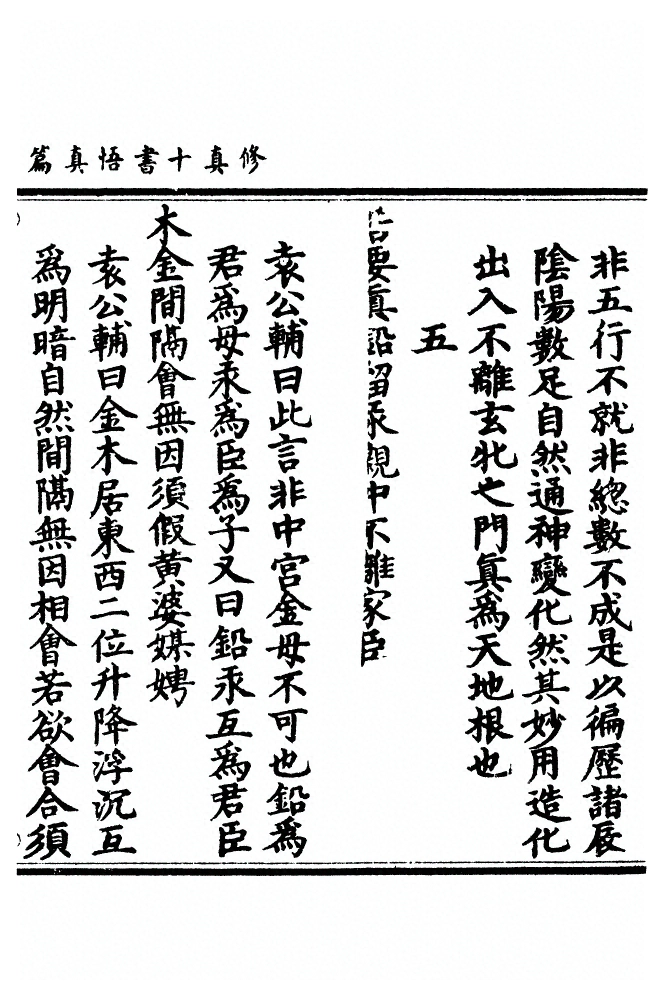 修真十書悟真篇
非五行不就非總數不成是以徧歷諸辰
陰陽數足自然通神變化然其妙用造化
出入不離玄牝之門真爲天地根也
五
若要真鉛留汞親中不離家臣
袁公輔曰此言非中宮金母不可也鉛爲
君爲母汞爲臣爲子又曰鉛汞互爲君臣
木金間隔會無因須假黃婆媒娉
袁公輔曰金木居東西二位升降浮沉互
爲明暗自然間隔無因相會若欲會合須